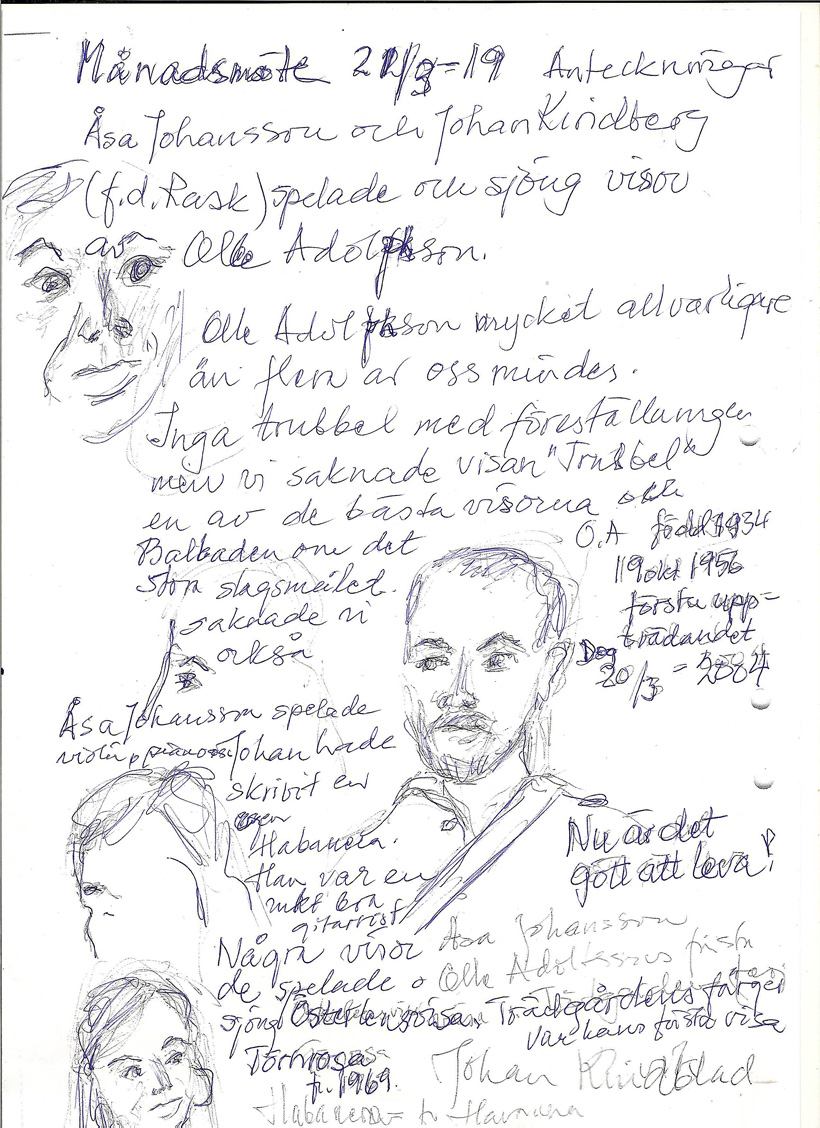 Månadsmöte 21/3-19 Anteckningar
Åsa Johansson och Johan Kindberg
(f.d. Rask) spelade och sjöng visor
av Olle Adolphson.
Olle Adolphson mycket allvarligare
än flera av oss mindes.
Inga trubbel med föreställningen
men vi saknade visan "Trubbel"
en av de bästa visorna och
Balladen om det
stora slagsmålet.
saknade vi
också
O.A född 1934
19 okt 1956
första upp-
trädandet
Dog
20/3 - 2004
Åsa Johansson spelade
violin, piano Johan hade
skrivit en
egen
Habanera.
Han var en
mkt bra
gitarrist
Nu är det
gott att leva!
Några visor
de spelade o
sjöng Österlensjösa, Trädgårdens färger
var hans första visa
Törnrosa
fr. 1969.
Åsa Johansson
Olle Adolfssons första
Johan Kindblad
Habanera = fr Havanna